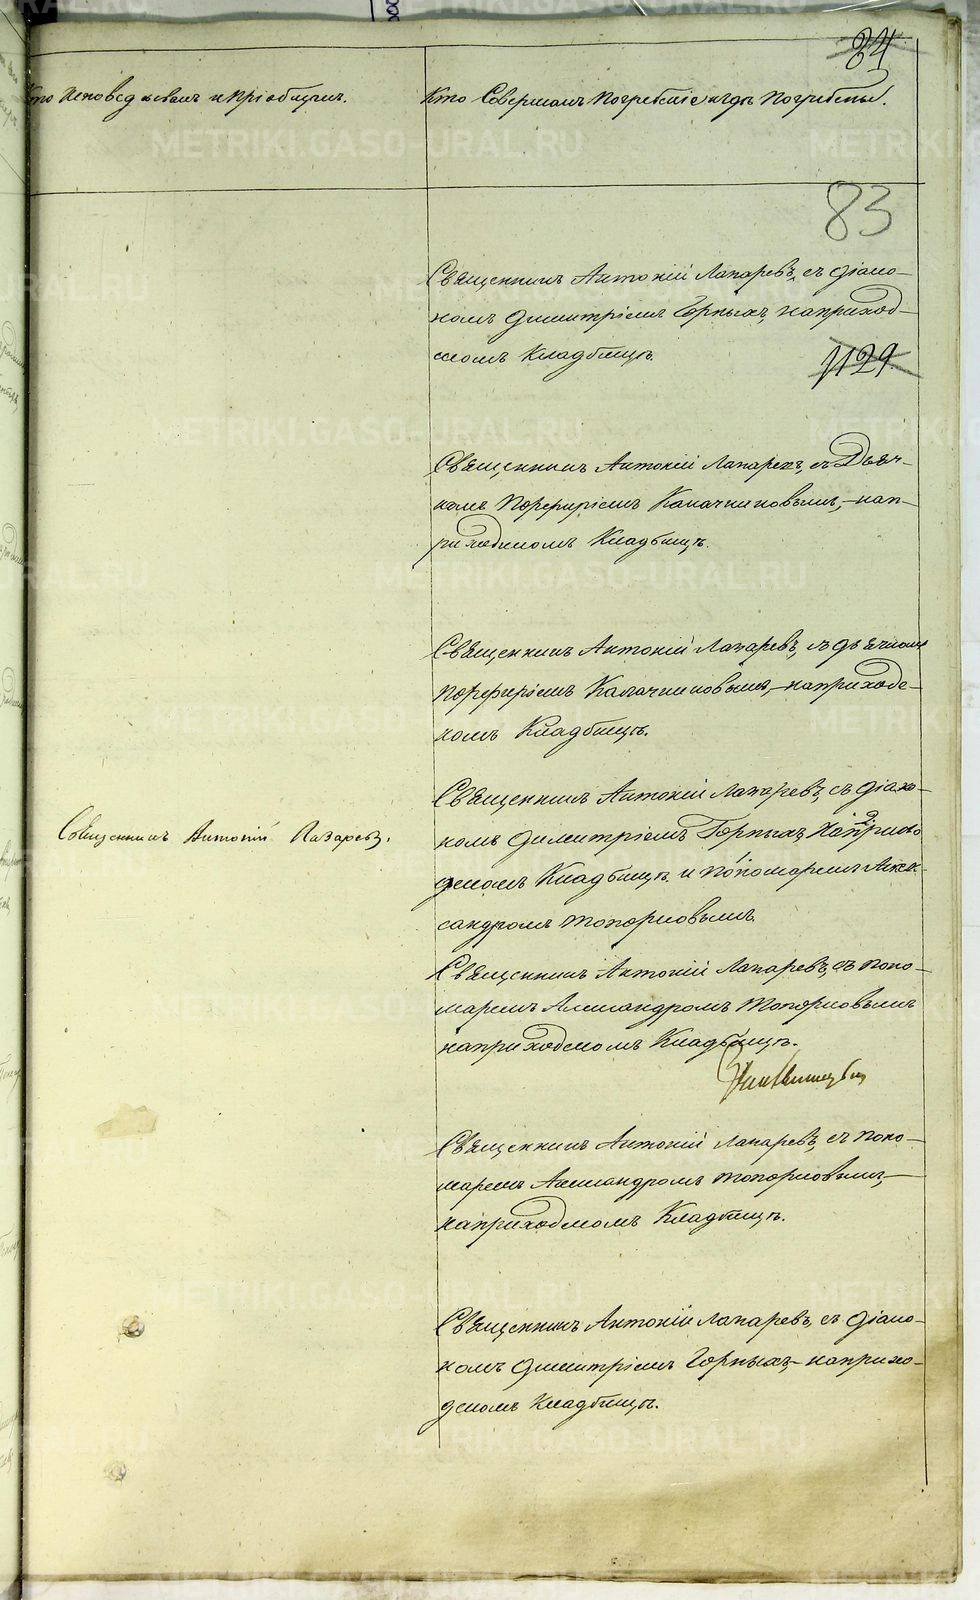 34
Кто Исповедывалъ и Пріобщилъ.
Кто Совершалъ Погребеніе и гдѣ Погребены.
83
Священникъ Антоній Лапаревъ, съ діако-
номъ Димитріемъ Горныхъ, наприход-
скомъ Кладбищѣ.
1129
Священникъ Антоній Лапаревъ, съ Дьяч-
комъ Порфиріемъ Калачниковымъ, нап-
риходскомъ Кладбищѣ.
Священникъ Антоній Лапаревъ, съ дьячкомъ
Порфиріемъ Калачниковымъ, наприходс-
комъ Кладбищѣ.
Священникъ Антоній Лазаревъ.
Священникъ Антоній Лапаревъ, съ діако-
номъ Димитріемъ Горныхъ, 2 наприхо
дскомъ Кладбищѣ. 1 и Пономаремъ Алек-
сандромъ Топорковымъ.
Священникъ Антоній Лапаревъ, съ поно-
маремъ Александромъ Топорковымъ
наприходскомъ Кладбищѣ.
Священникъ Антоній Лапаревъ, съ поно-
маремъ Александромъ Топорковымъ,
наприходскомъ Кладбищѣ.
Священникъ Антоній Лапаревъ, съ діако-
номъ Димитріемъ Горныхъ, наприхо-
дскомъ Кладбищѣ.
METRIKI.GASO-URAL.RU